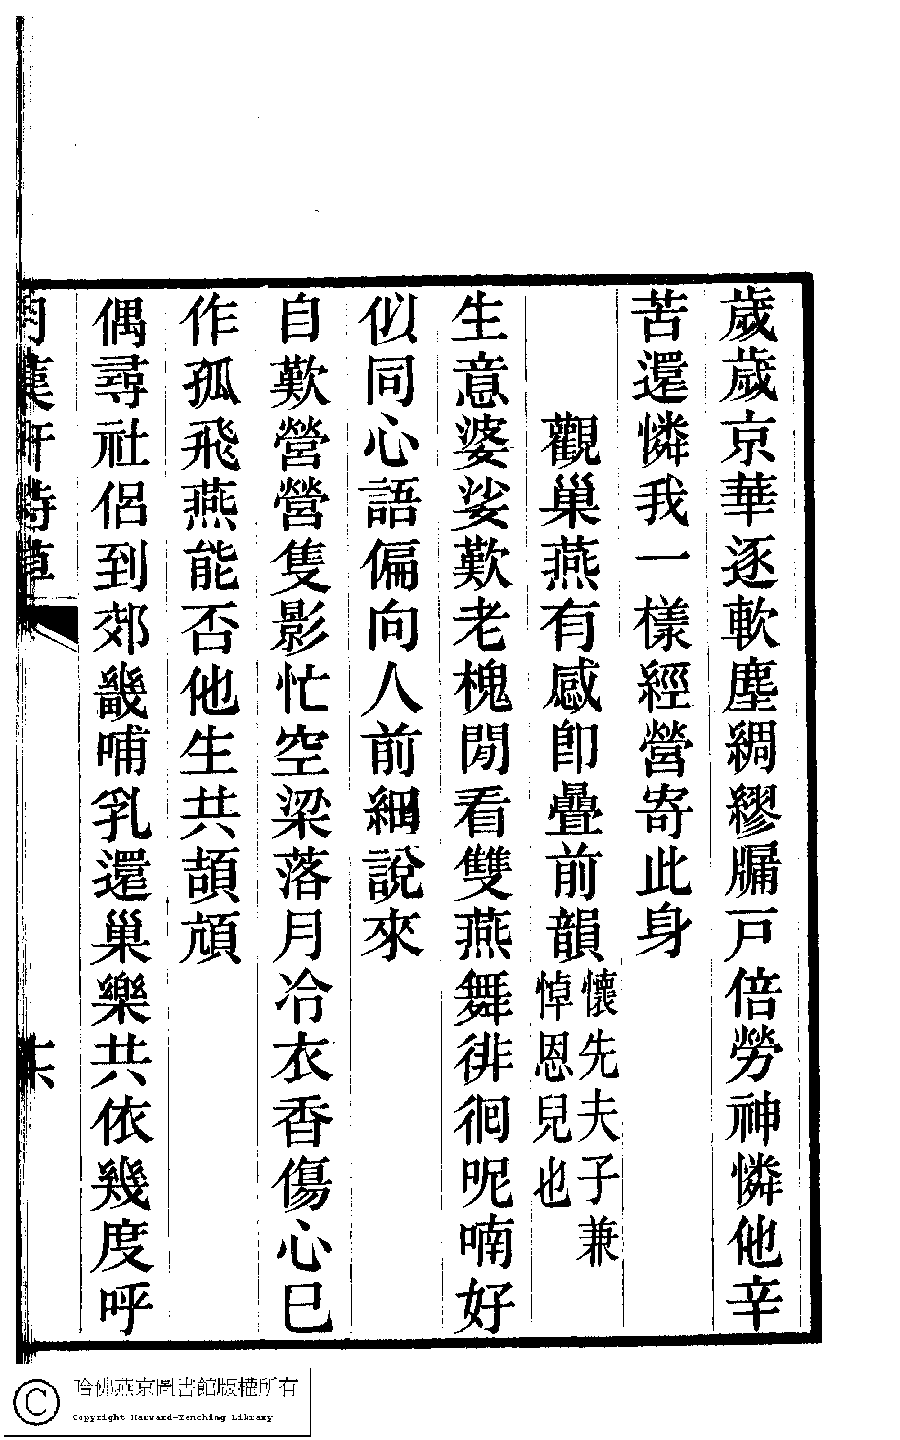 歲歲京華逐軟塵綢繆牖戸倍勞神憐他辛
苦還憐我一樣經營寄此身
觀巢燕有感卽疊前韻懷先夫子兼
悼恩兒也
生意婆娑歎老槐閒看雙燕舞徘徊呢喃好
似同心語偏向人前細說來
自歎營營隻影忙空梁落月冷衣香傷心巳
作孤飛燕能否他生共頡頏
偶尋社侶到郊畿哺乳還巢樂共依幾度呼
詩草
哈佛燕京圖書館版權所有
Copyright Harvard-Yenching Library